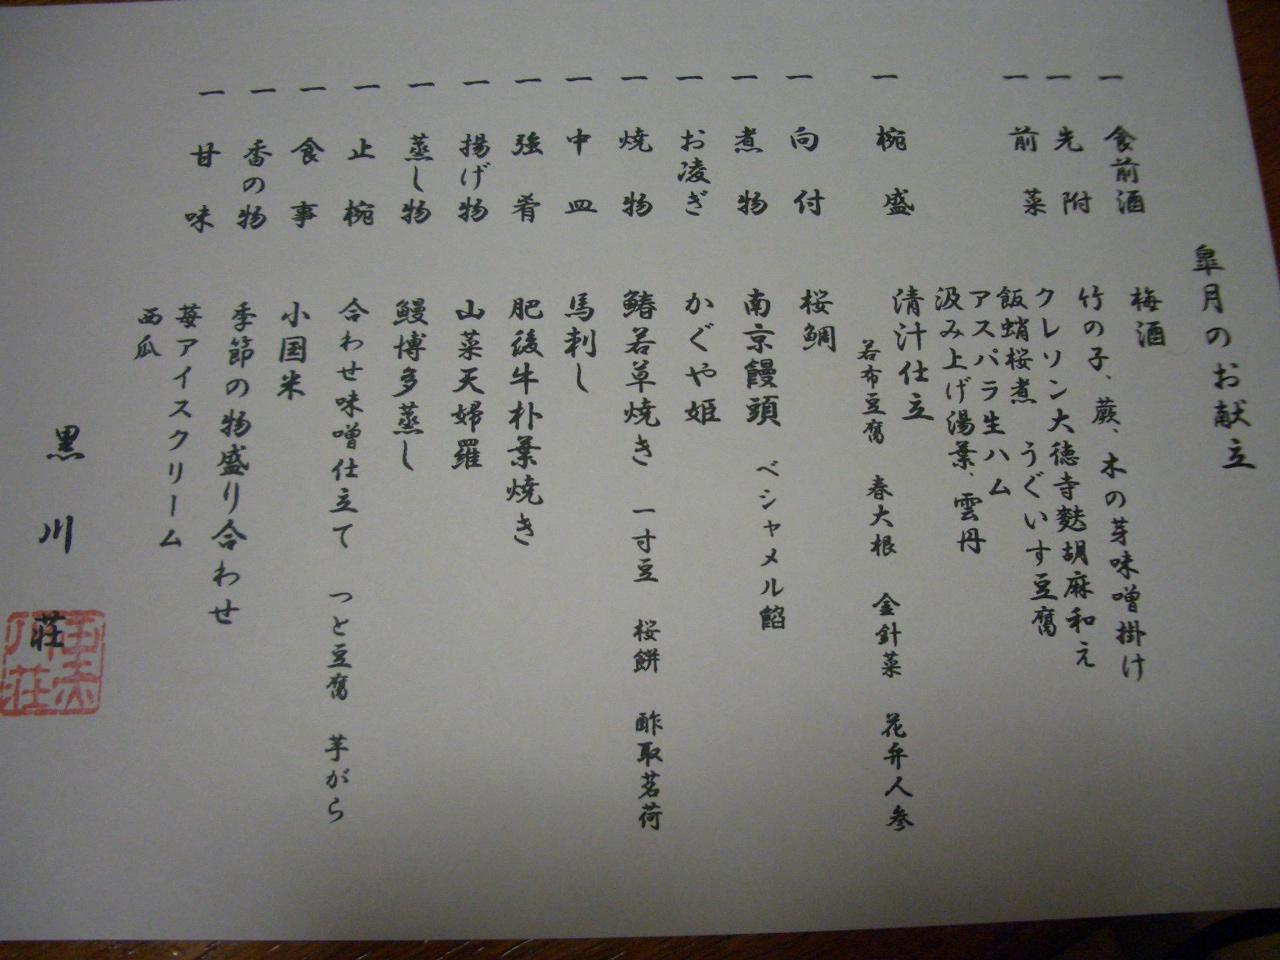 皐月のお献立
一 食前酒 梅酒
一 先附 竹の子、蕨、木の芽味噌掛け
一 前菜 クレソン大徳寺麩胡麻和え
飯蛸桜煮 うぐいす豆腐
アスパラ生ハム
汲み上げ湯葉、雲丹
一 椀盛 清汁仕立
若布豆腐 春大根 金針菜 花弁人参
一 向付 桜鯛
一 煮物 南京饅頭 ベシャメル餡
一 お凌ぎ かぐや姫
一 焼物 鰆若草焼き 一寸豆 桜餅 酢取茗荷
一 中皿 馬刺し
一 強肴 肥後牛朴葉焼き
一 揚げ物 山菜天婦羅
一 蒸し物 鰻博多蒸し
一 止椀 合わせ味噌仕立て つと豆腐 芋がら
一 食事 小国米
一 香の物 季節の物盛り合わせ
一 甘味 苺アイスクリーム
西瓜
黒川荘